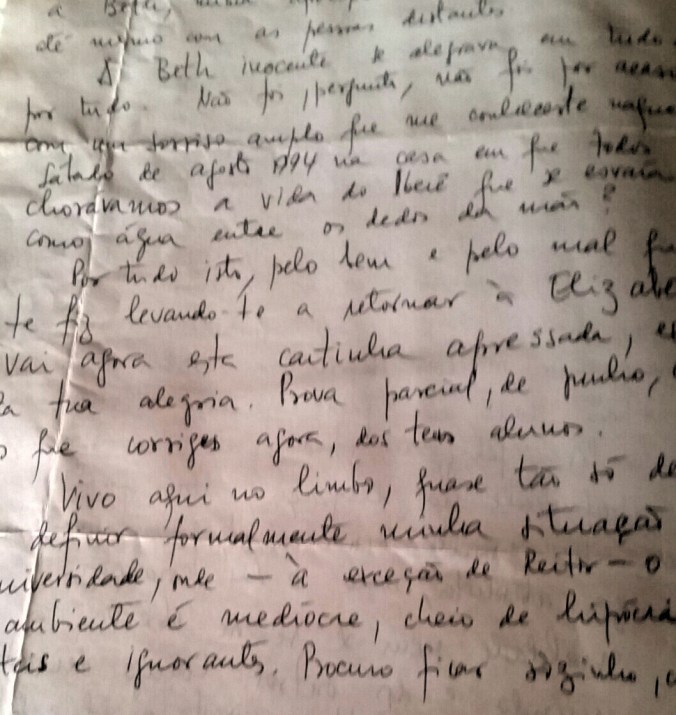 a Beth,
até mesmo com as pessoas distantes
A Beth inocente se alegrava em tudo.
por tudo. Não foi, pergunto, não foi por acaso
com um sorriso amplo que me conheceste
sábado de agosto 1994 na casa em que todos
chorávamos a vida do Iberê que se esvaía
como água entre os dedos da mão?
Por tudo isto, pelo bem e pelo mal
te fiz levando-te a retornar à Elizabe
vai agora esta cartinha apressada,
tua alegria. Prova parcial, de junho,
que corriges agora, dos teus alunos.
Vivo aqui no limbo, quase tão só
definir formalmente minha situação
niversidade, onde – à exceção do Reitor – o
ambiente é mediocre, cheio de hipócri
tais e ignorantes. Procuro ficar sozinho,